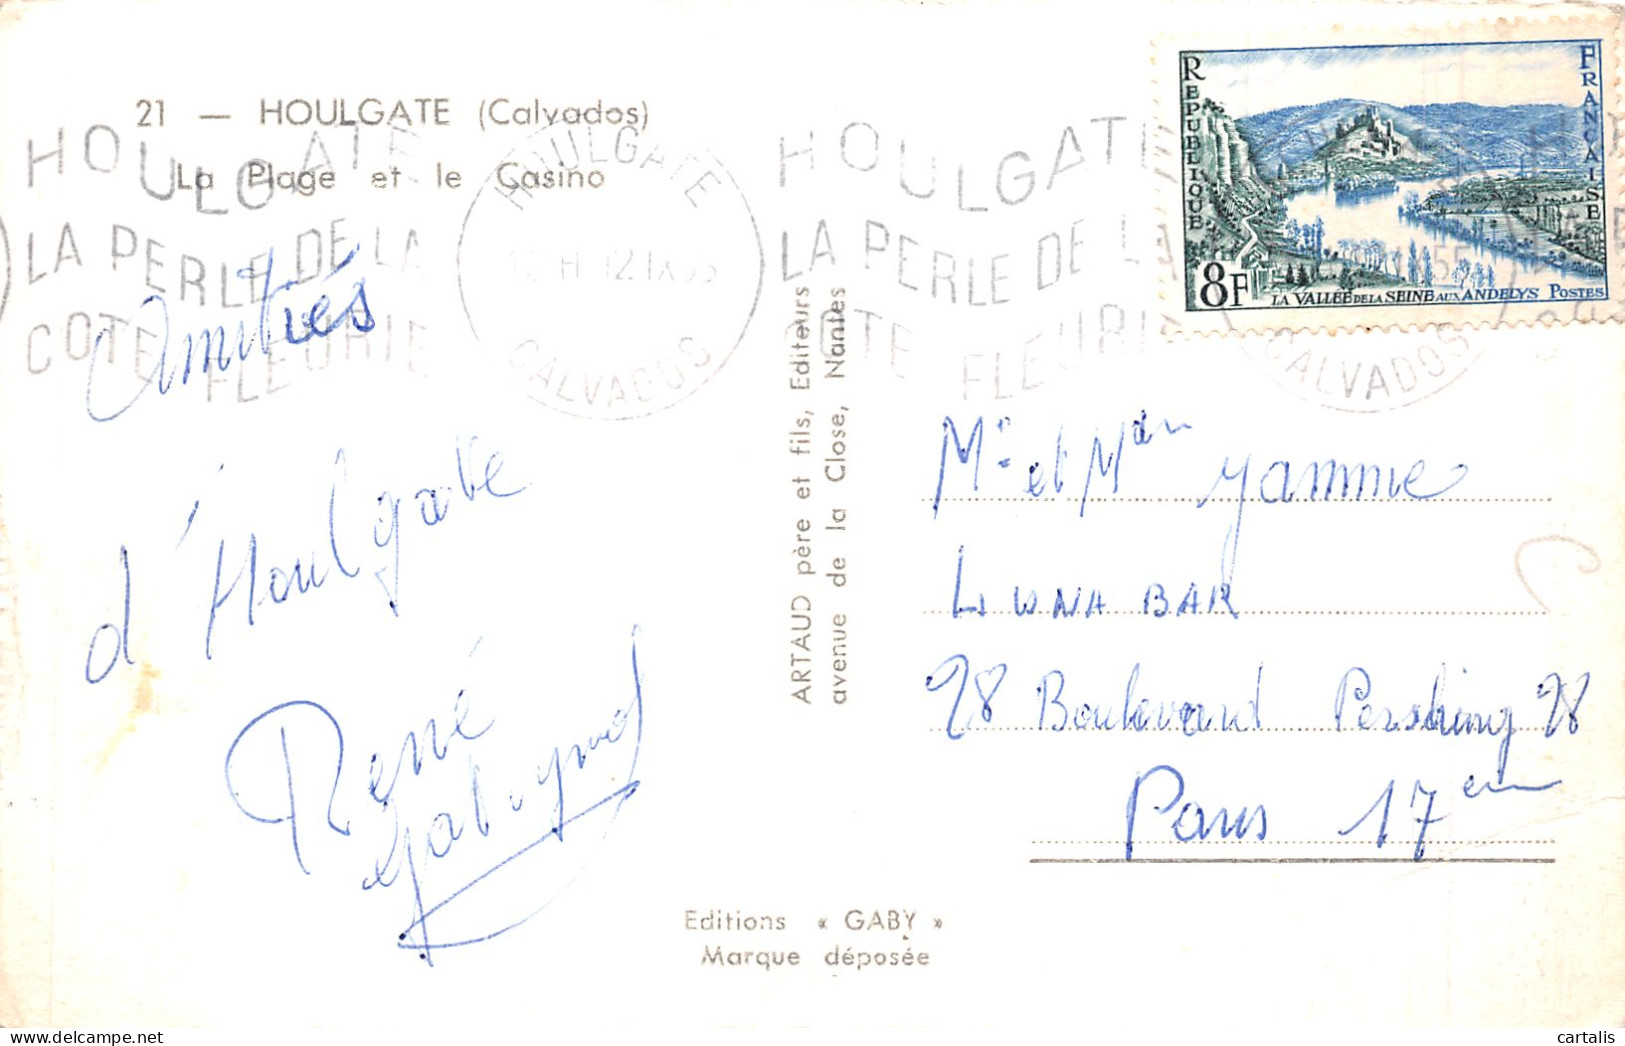 21 — HOULGATE (Calvados)
La Plage et le Casino
HOULGATE
LA PERLE DE LA
COTE FLEURIE
HOULGATE
12 IX 55
CALVADOS
HOULGATE
LA PERLE DE LA
COTE FLEURIE
CALVADOS
REPUBLIQUE
FRANÇAISE
8F
LA VALLÉE DE LA SEINE AUX ANDELYS POSTES
Amitiés
d'Houlgate
René
ARTAUD père et fils, Editeurs
avenue de la Close, Nantes
Mr et Mdm Yammie
LUNA BAR
28 Boulevard Pershing 28
Paris 17em
Editions « GABY »
Marque déposée
cartalis